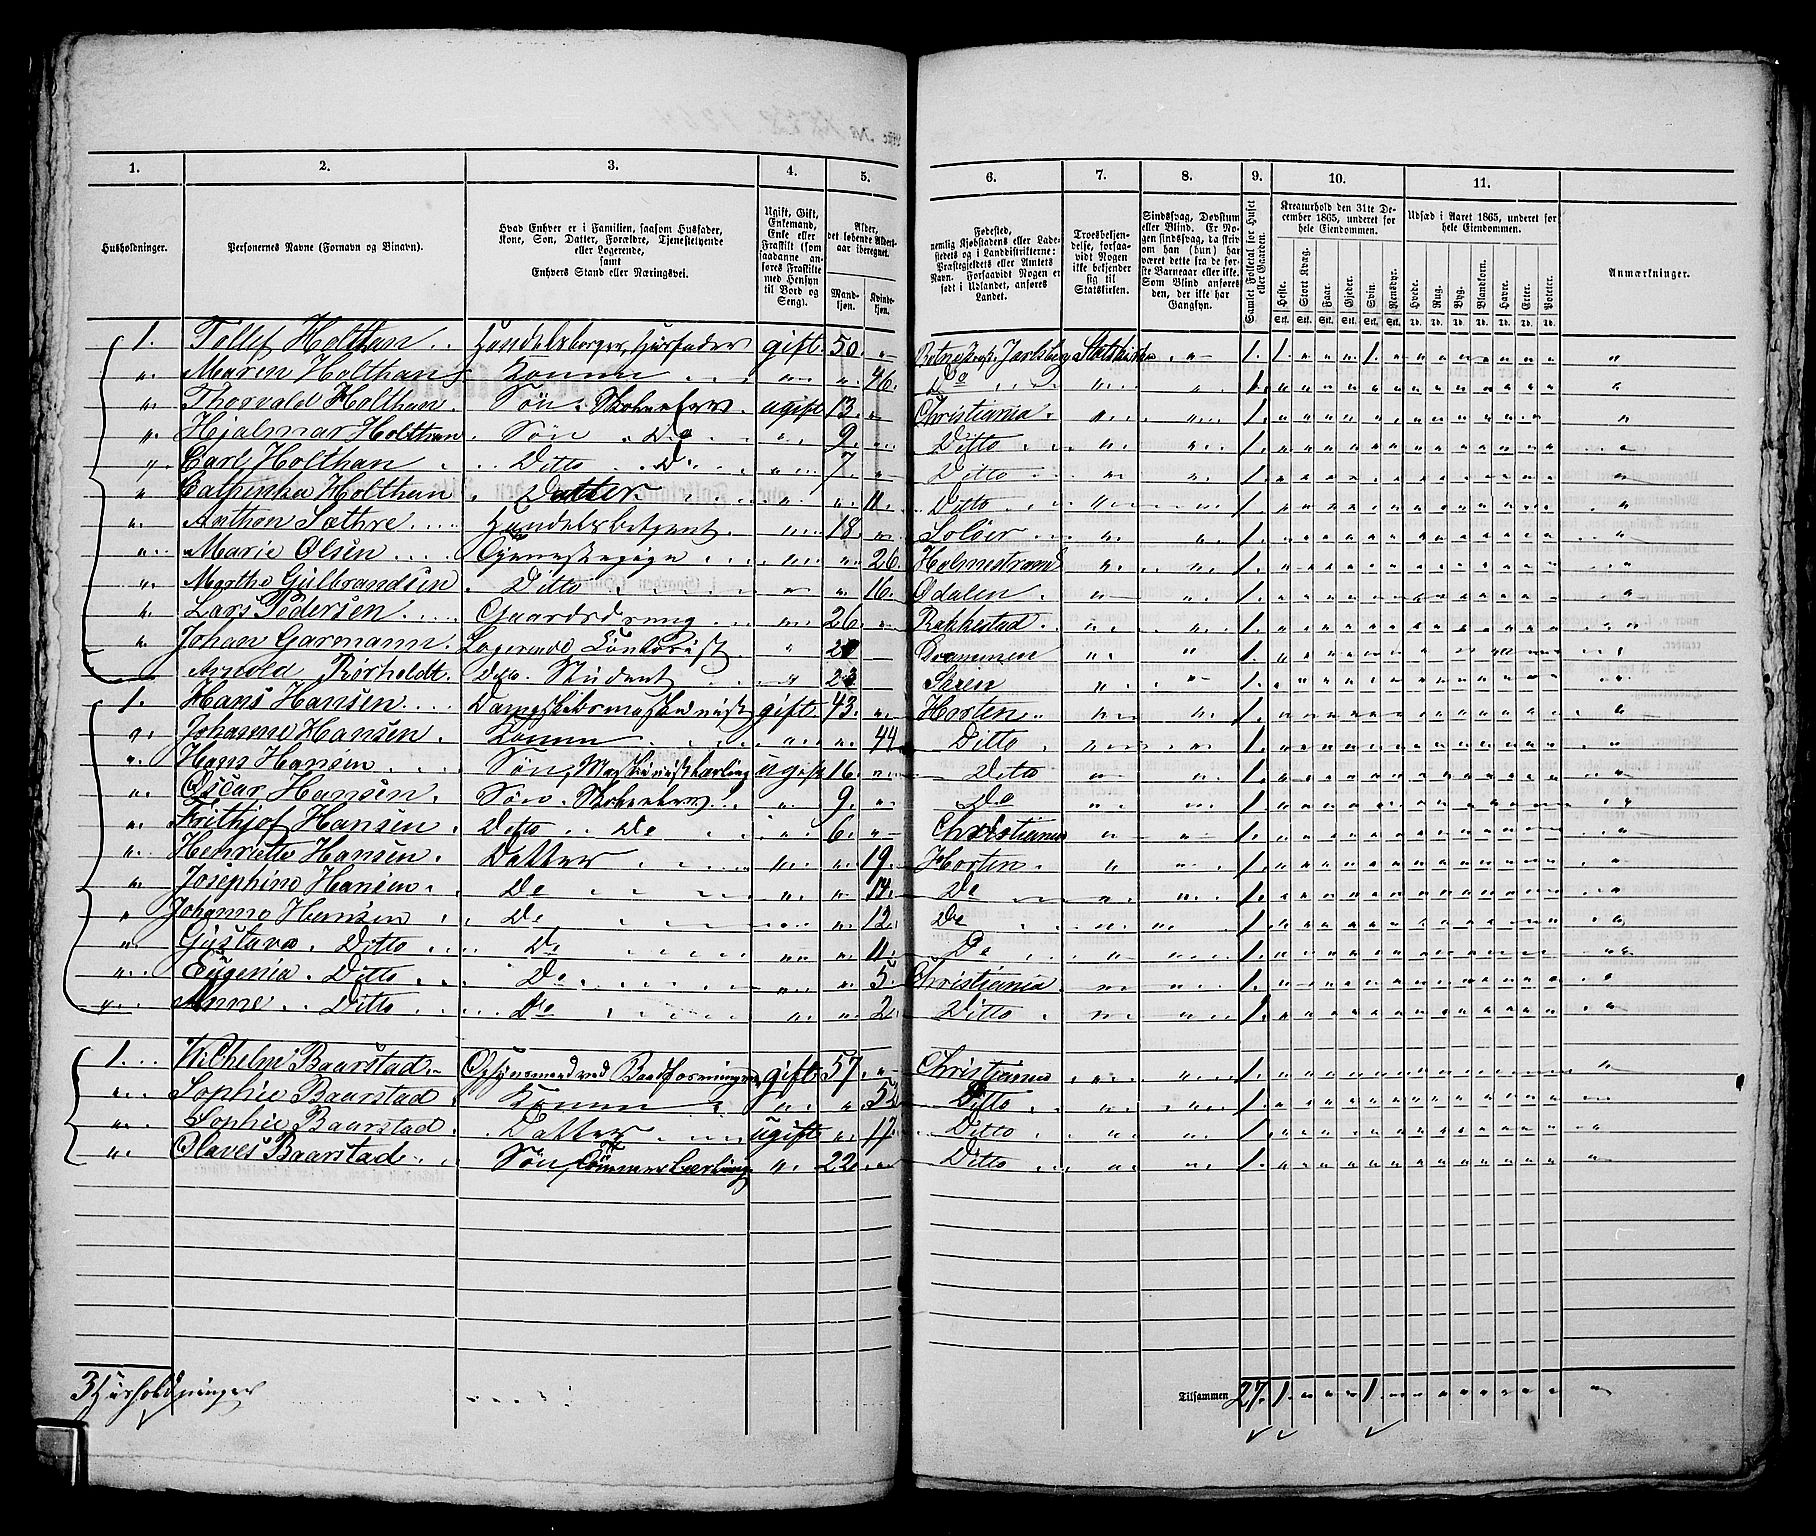 1. 2. 3. 4. 5. 6. 7. 8. 9. 10. 11.
Husholdninger.
Personernes Navne (Fornavn og Binavn).
Hvad Enhver er i Familien, saasom Husfader, Kone, Søn, Datter, Forældre, Tjenestetyende eller Logerende, samt Enhvers Stand eller Næringsvei.
Ugift, Gift, Enkemand, Enke eller Fraskilt (som saadanne anføres Fraskilte med Hensyn til Bord og Seng).
Alder, det løbende Alders-aar iberegnet. Mand-kjøn. Kvinde-kjøn.
Fødested, nemlig Kjøbstadens eller Ladestedets og i Landdistrikterne: Præstegjeldets eller Amtets Navn. Forsaavidt Nogen er født i Udlandet, anføres Landet.
Troesbekjendelse, forsaavidt Nogen ikke bekjender sig til Statskirken.
Sindssvag, Døvstum eller Blind. Er Nogen sindssvag, da skriv om han (hun) har været dette fra de første Barneaar eller ikke. Som Blind anføres den, der ikke har Gangsyn.
Samlet Folketal for Huset eller Gaarden.
Kreaturhold den 31te December 1865, underet for hele Eiendommen.
Heste. Stort Kvæg. Faar. Gjeder. Svin. Rensdyr.
Udsæd i Aaret 1865, underet for hele Eiendommen.
Hvede. Rug. Byg. Blandkorn. Havre. Erter. Poteter.
Anmærkninger.
1. Tollef Holthan Handelsborger, Husfader gift. 50. " Botne Jarlsberg Statskirken " 1. 1. " " " 1. "
" Maren Holthan Konen " " 46. Do " " 1.
" Thorvald Holthan Søn. Skoleelev ugift 13. " Christiania " " 1.
" Hjalmar Holthan Søn Do " 9. " Ditto " " 1.
" Carl Holthan Ditto Do " 7. " Ditto " " 1.
" Cathinka Holthan Datter " " 11. Ditto " " 1.
" Anthon Sæthre Handelsbetjent " 18. " Soløer " " 1.
" Marie Olsen Tjenestepige " " 26. Holmestrand " " 1.
" Marthe Gulbrandsen Ditto " " 16. Odalen " " 1.
" Lars Pedersen Gaardsdreng " 26. " Rakkestad " " 1.
" Johan Garmann Logerende Contorist " Drammen " " 1.
Arnold Rørholdt Ditto. Student " 23 Skien " " 1.
1. Hans Hansen Dampskibsmaskinist gift. 43. " Horten " " 1.
" Johanne Hansen Konen " " 44 Ditto " " 1.
" Hans Hansen Søn, Maskinistlærling ugift 16. " Ditto " " 1.
" Oscar Hansen Søn. Skoleelev " 9. " Do " " 1.
" Frithjof Hansen Ditto Do " 6. " Christiania " " 1.
" Henriette Hansen Datter " " 19. Horten " " 1.
" Josephine Hansen Do " " 14. Do " " 1.
" Johanne Hansen Do " " 12. Do " " 1.
" Gustava Ditto Do " " 11. Do " " 1.
" Eugenia Ditto Do " " 5. Christiania " " 1.
" Anne Ditto Do " " 2. Ditto " " 1.
1. Wilhelm Baarstad Opsynsmand ved gift. 57. " Christiania " " 1.
" Sophie Baarstad Konen " " Ditto " " 1.
" Sophie Baarstad Datter ugift " 17. Ditto " " 1.
" Olaves Baarstad Søn, Tømmerlærling " 22. " Ditto " " 1.
3 Husholdninger
Tilsammen 27. 1. " " " 1. "